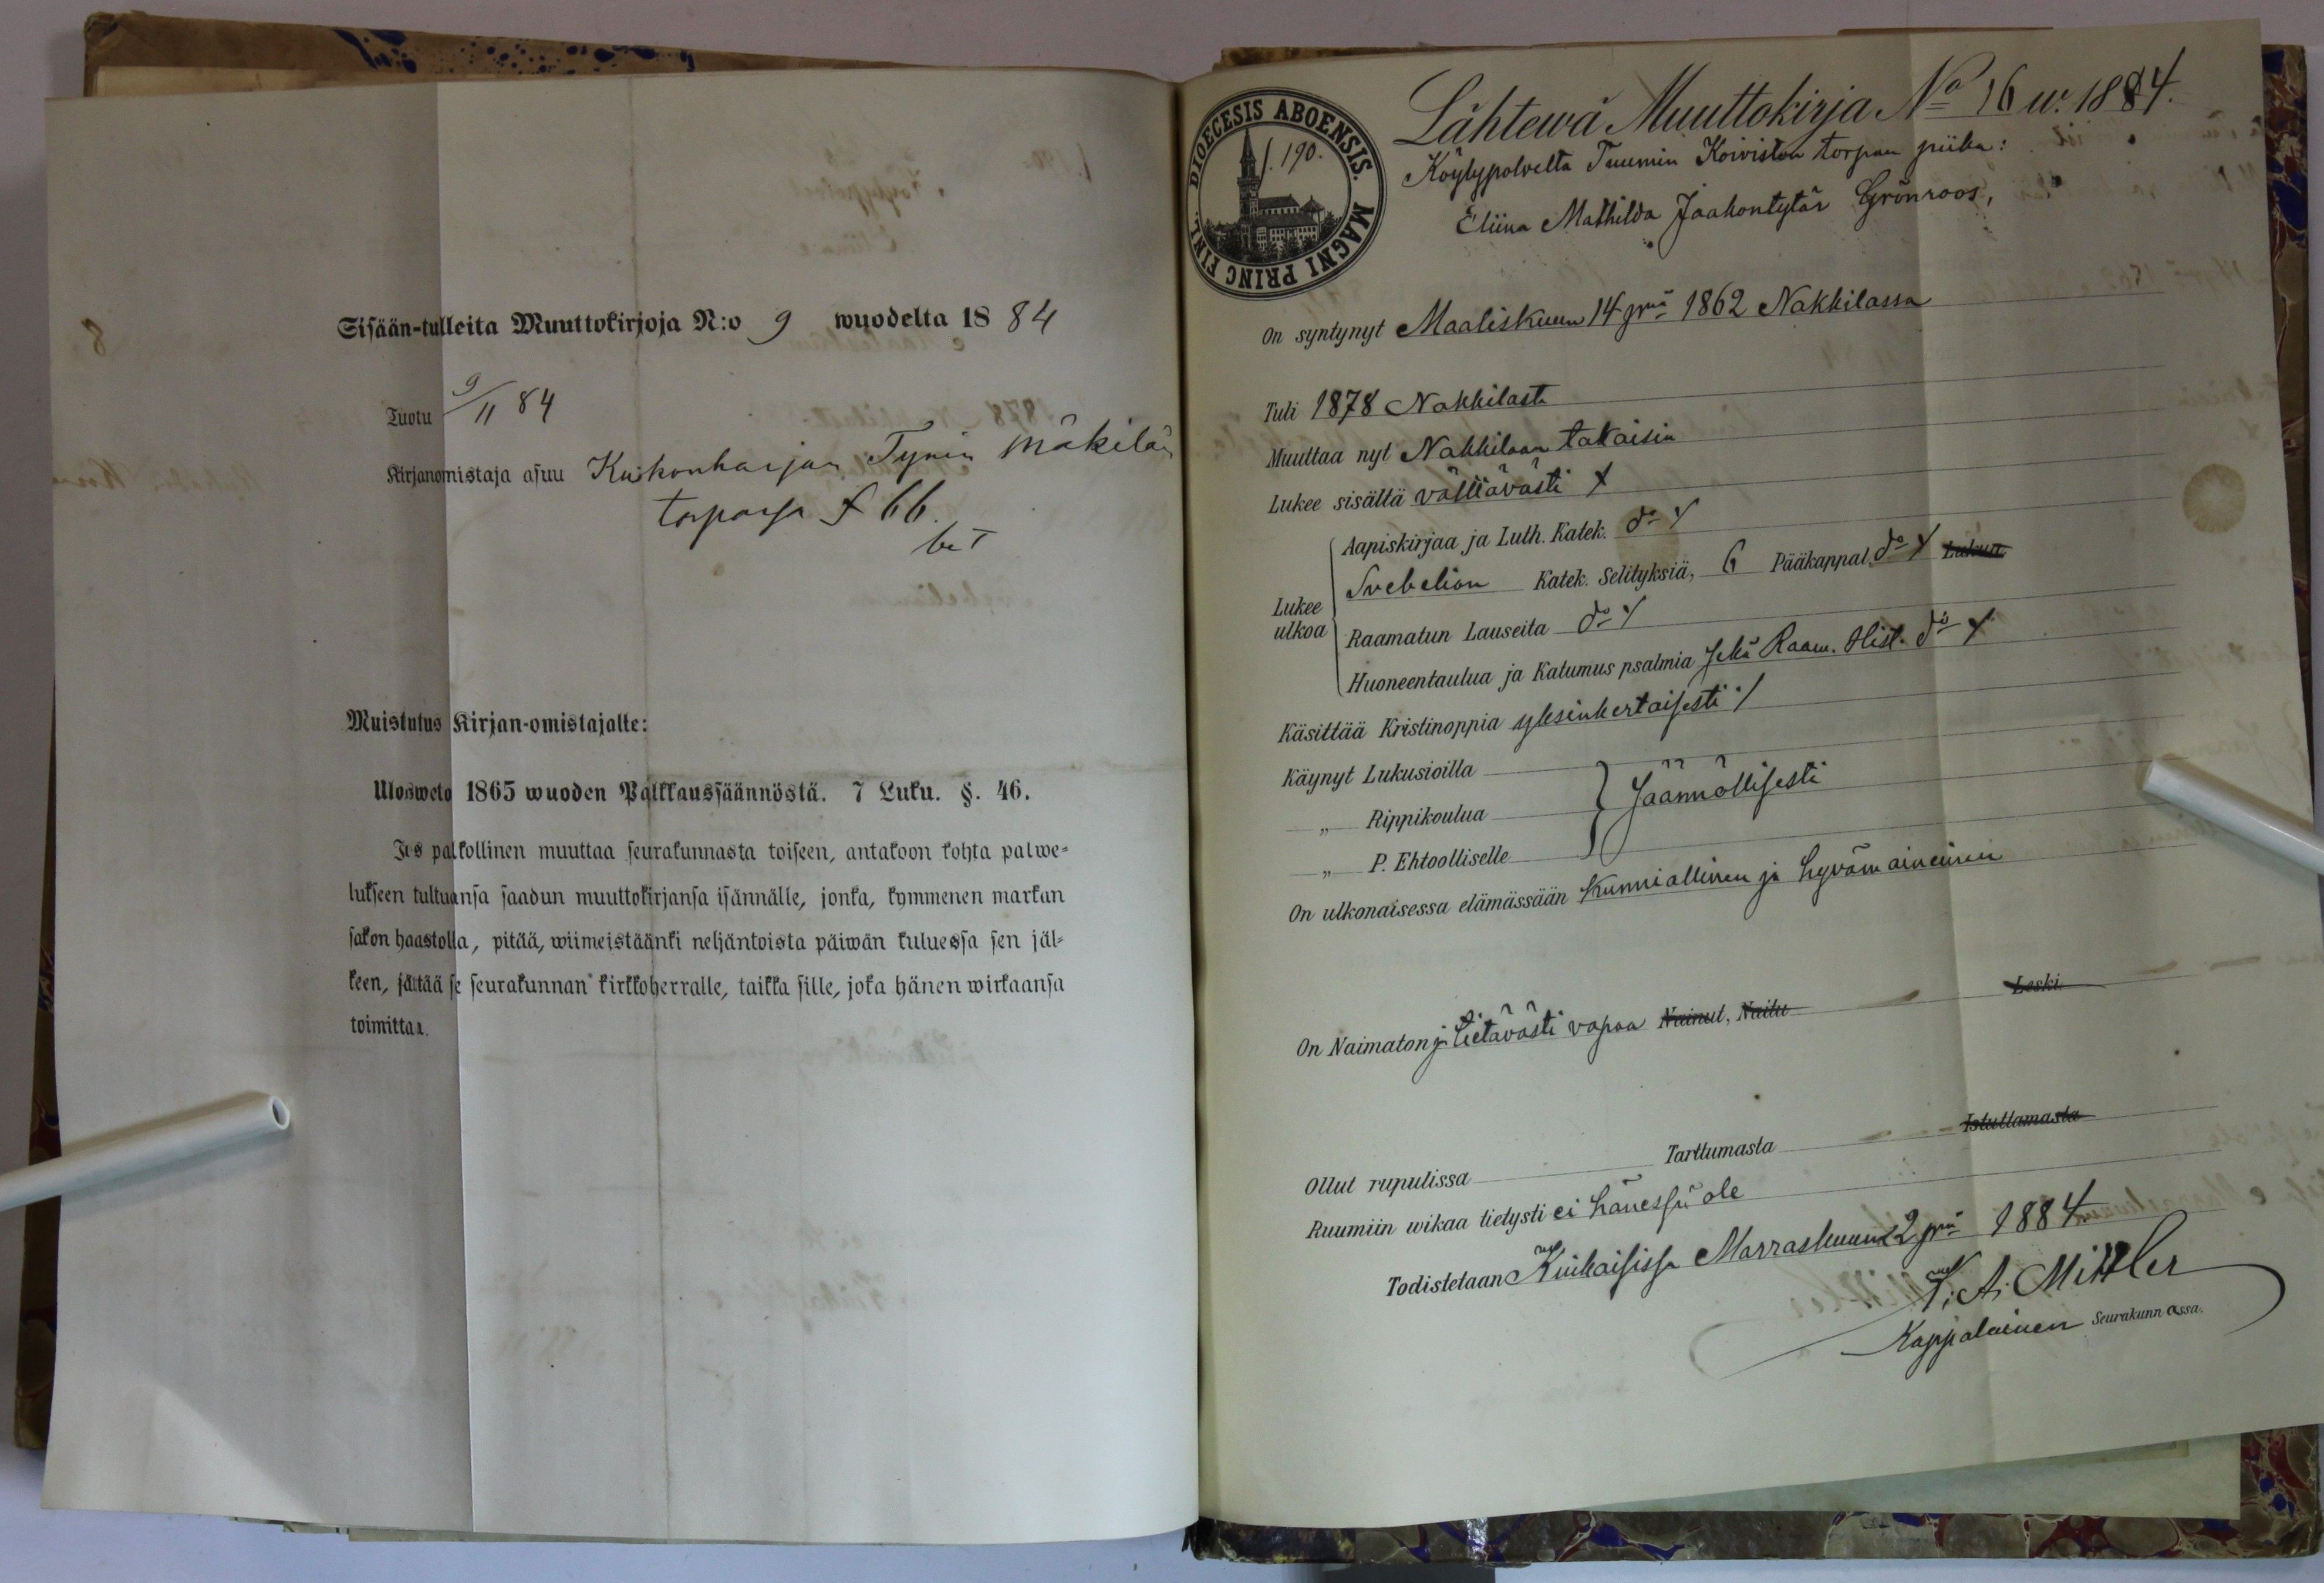 Sisään-tulleita Muuttokirjoja N:o 9 wuodelta 18 84
Tuotu 9/11 84
Kirjanomistaja asuu Kukonharjan Tynin Mäkilän
torpassa f 66.
Muistutus Kirjan-omistajalle:
Ulosweto 1865 wuoden Palkkaussäännöstä. 7 Luku. §. 46.
Jos palkollinen muuttaa seurakunnasta toiseen, antakoon kohta palwe-
lukseen tultuansa saadun muuttokirjansa isännälle, jonka, kymmenen markan
sakon haastolla, pitää, wiimeistäänki neljäntoista päiwän kuluessa sen jäl-
keen, jättää se seurakunnan kirkkoherralle, taikka sille, joka hänen wirkaansa
toimittaa.
DIOECESIS ABOENSIS. MAGNI PRINC FINL.
f. 190.
Lähtewä Muuttokirja No 16 w. 1884.
Köylypolvelta Tuumin Koiviston torpan piika:
Eliina Mathilda Jaakontytär Grönroos,
On syntynyt Maaliskuun 14 pnä 1862 Nakkilassa
Tuli 1878 Nakkilasta
Muuttaa nyt Nakkilaan takaisin
Lukee sisältä välttävästi
Lukee ulkoa
Aapiskirjaa ja Luth. Katek. do
Svebelion Katek. Selityksiä, 6 Pääkappal. do Lukua
Raamatun Lauseita do
Huoneentaulua ja Katumus psalmia sekä Raam. Hist. do
Käsittää Kristinoppia yksinkertaisesti
Käynyt Lukusioilla
„ Rippikoulua Säännöllisesti
„ P. Ehtoolliselle
On ulkonaisessa elämässään Kunniallinen ja hyvämaineinen
On Naimaton ja tietävästi vapaa Nainut, Naitu Leski
Ollut rupulissa Tarttumasta Istuttamasta
Ruumiin wikaa tietysti ei hänessä ole
Todistetaan Kiukaisissa Marraskuun 2 pnä 1884
K. A. Mittler
Kappalainen Seurakunnassa.